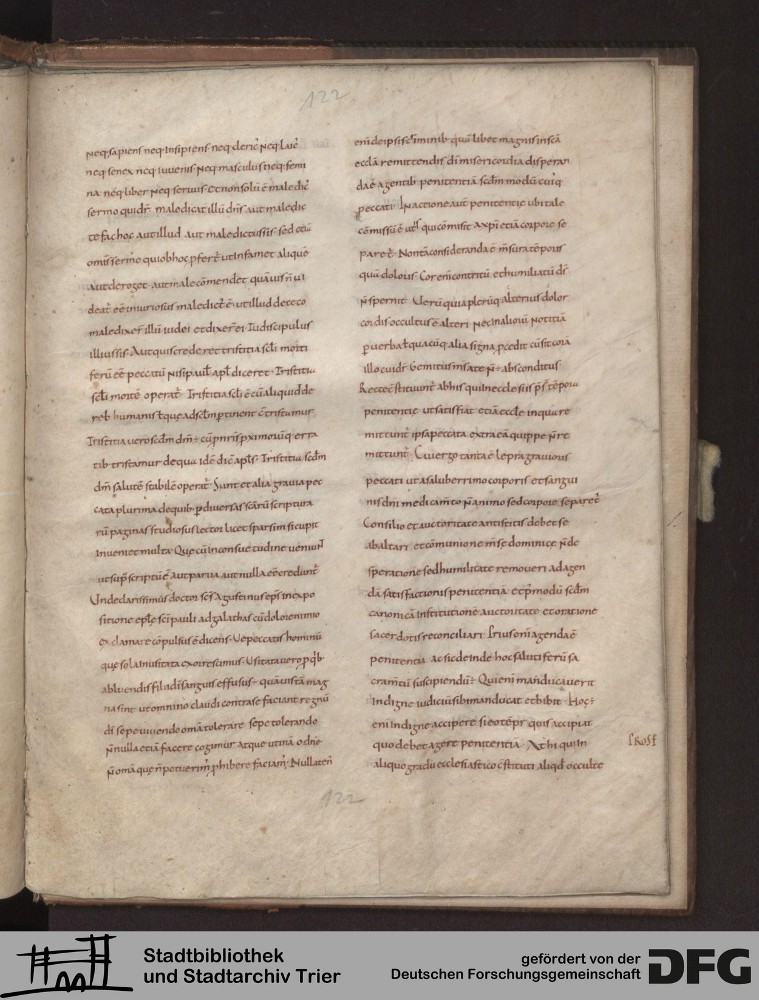 122
neq; sapiens neq; insipiens neq; cleric' neq; laic'
neq; senex neq; iuuenis neq; masculus neq; femi
na neq; liber neq; seruus et non solū ē maledic'
sermo quidē maledicat illū dn̄s aut maledic
te fac hoc aut illud aut maledictus sis sed etiā
omis sermo quiob hoc pfert̄ ut infamet aliquē
aut deroget aut male cōmendet quāuis n̄ ui
deat' eē iniuriosus maledict' ē ut illud de ceco
maledixer̄ illū iudei et dixer̄ ei tu discipulus
illius sis aut quis crederet tristitia sc̄li morti
ferū eē peccatū nisi paul' apl̄ diceret tristitia
sc̄li mortē operat' tristitia sc̄li ē cū aliquid de
reb; humanis
tristitia uero scdm dm̄
tib; tristamur de qua idē dic̄ apl̄s tristitia scdm
dm̄ salutē stabilē operat' Sunt et alia grauia pec
cata plurima de quib; p diuersas scārū scriptura
rū paginas studiosus lector licet sparsim si cupit
inueniet multa Que cū in consuetudine ueniun̄t
ut sup̄ scriptū ē aut parua aut nulla eē credunt̄
Unde clarissimus doctor sc̄s agustinus ep̄s in expo
sitione epl̄e sc̄i pauli ad galathas cū dolore nimio
exclamare cōpulsus ē dicens Ue peccatis hominū
que sola inusitata exorrescimus Usitata uero p q̄b;
abluendis filii di sanguis effusus ÷ quāuis tā mag
na sint ut omnino claudi contra se faciant regnū
di sepe uiuendo omā tolerare sepe tolerando
n̄nulla etiā facere cogimur atque utinā o dn̄e
n̄ omā que n̄ potuerim' phibere faciam' Nullaten̄
eni de ipsis criminib; quā libet magnis in scā
eccl̄a remittendis di misericordia disperan
da ē agentib; penitentiā scdm modū cuiq;
peccati In actione aut penitentie ubi tale
cōmissū ē ut is qui cōmisit a xpi etiā corpore se
paret' Non tā consideranda ē mensura tēporis
quā doloris Cor eni contritū et humiliatū ds̄
n̄ spernit Uerū quia plerūq; alterius dolor
cordis occultus ē alteri nec in aliorū notitiā
p uerba t̄ quacūq; alia signa pcedit cū sit corā
illo cui dr̄ gemitus m̄s a te n̄ ÷ absconditus
Recte cstituunt̄ ab his qui in ecclesiis p̄sunt tēpora
penitentie ut satis fiat etiā eccl̄e in qua re
mittunt̄ ipsa peccata extra eā quippe n̄ re
mittunt̄ Cui uergo tanta ē lepra grauioris
peccati ut a saluberrimo corporis et sangui
nis dn̄i medicam̄to n̄ animo sed corpore separet'
Consilio et auctoritate antistitis debet se
ab altari et cōmunione mense dominice n̄ de
speratione sed humilitate remoueri ad agen
dā satisfactionis penitentiā et p modū scdm
canonicā institutionē auctoritate et oratione
sacerdotis reconciliari Prius eni agenda ē
penitentia ac sic deinde hoc salutiferū sa
cram̄tū suscipiendū ÷ Qui eni manducauerit
indigne iudiciū sibi manducat et bibit Hoc ÷
eni indigne accipere si eo tēpr quis accipiat
quo debet agere penitentiā At hi qui in
aliquo gradu ecclesiastico cstituti aliqd occulte
P̄ROSP̄
122
Stadtbibliothek
und Stadtarchiv Trier
gefördert von der
Deutschen Forschungsgemeinschaft
DFG